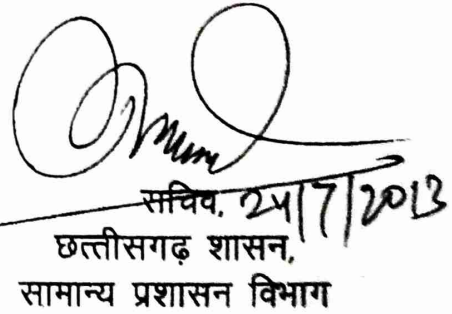 सचिव, 24/7/2013
छत्तीसगढ़ शासन,
सामान्य प्रशासन विभाग